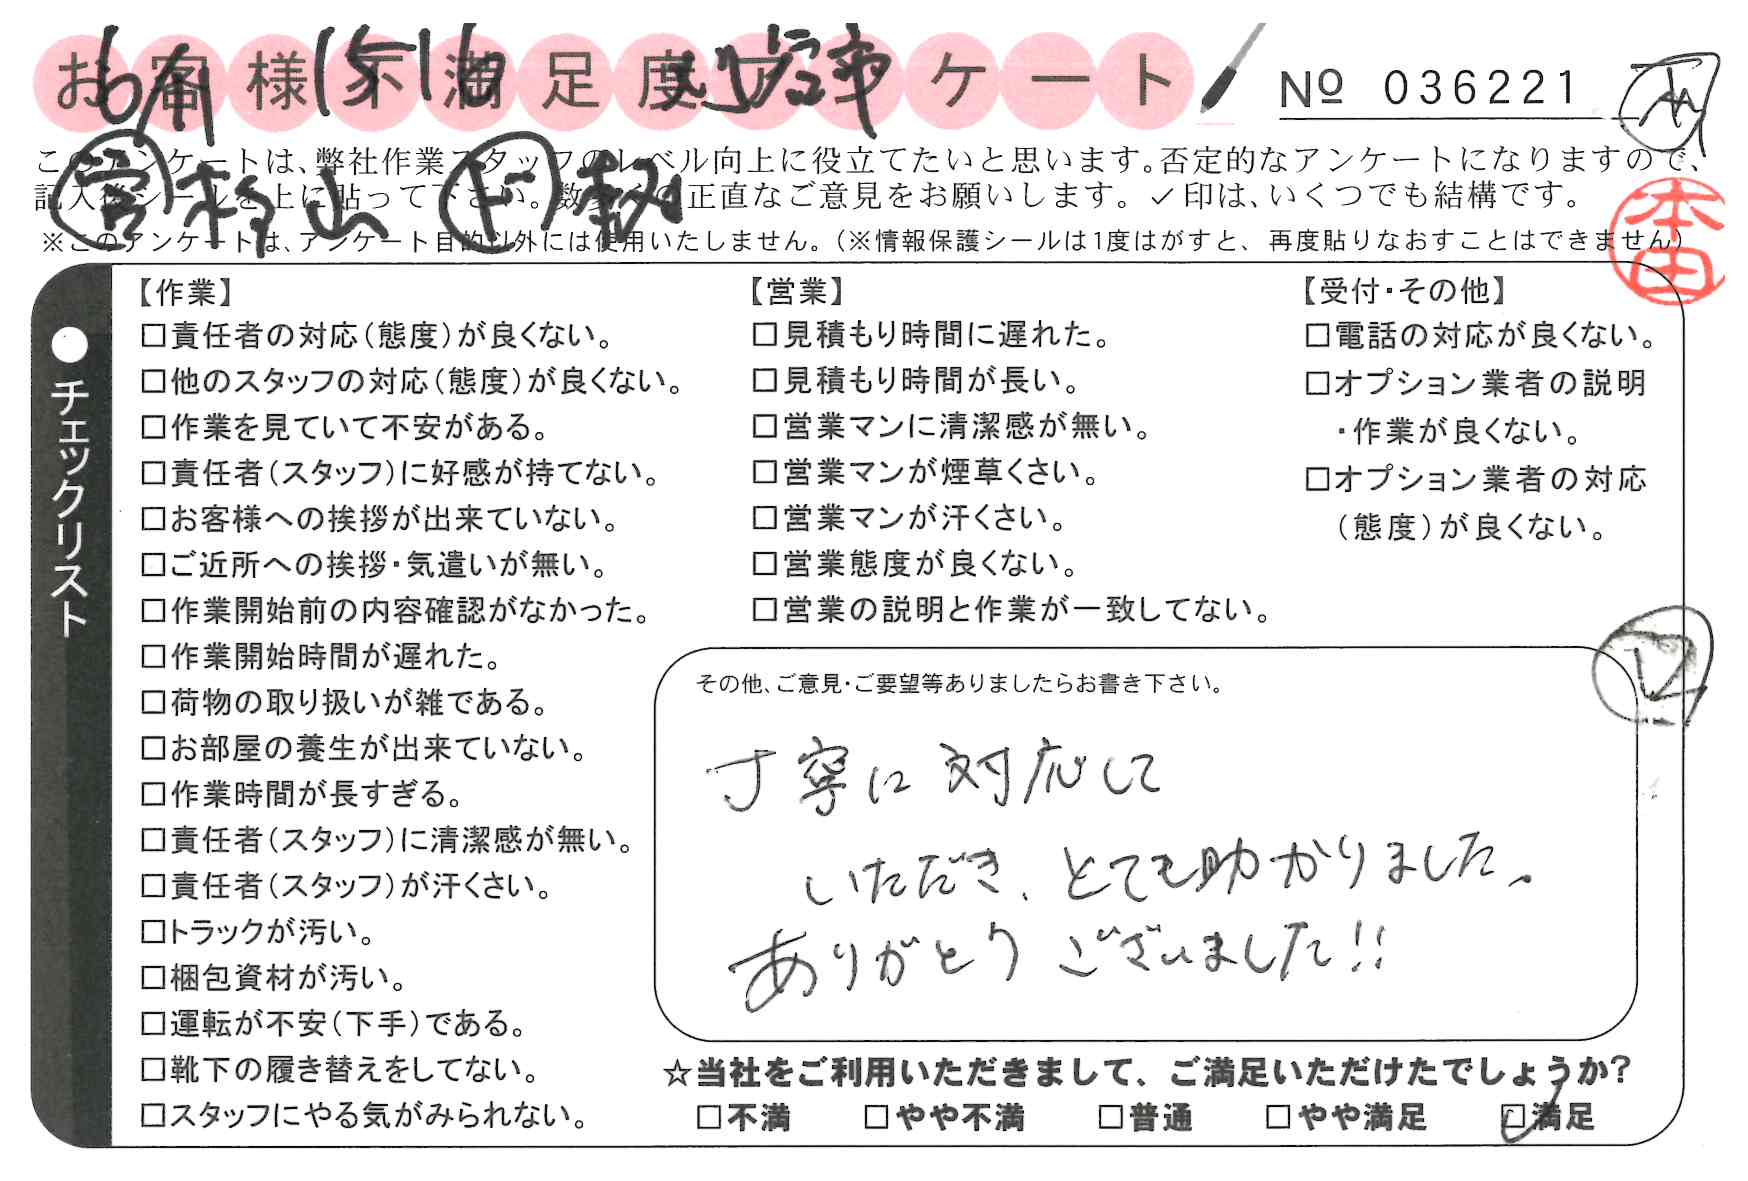 お客様不満足度アンケート
№ 036221
このアンケートは、弊社作業スタッフのレベル向上に役立てたいと思います。否定的なアンケートになりますので、
記入後シールを上に貼って下さい。数多くの正直なご意見をお願いします。✓印は、いくつでも結構です。
※このアンケートは、アンケート目的以外には使用いたしません。(※情報保護シールは1度はがすと、再度貼りなおすことはできません)
本田
●チェックリスト
【作業】
□責任者の対応(態度)が良くない。
□他のスタッフの対応(態度)が良くない。
□作業を見ていて不安がある。
□責任者(スタッフ)に好感が持てない。
□お客様への挨拶が出来ていない。
□ご近所への挨拶・気遣いが無い。
□作業開始前の内容確認がなかった。
□作業開始時間が遅れた。
□荷物の取り扱いが雑である。
□お部屋の養生が出来ていない。
□作業時間が長すぎる。
□責任者(スタッフ)に清潔感が無い。
□責任者(スタッフ)が汗くさい。
□トラックが汚い。
□梱包資材が汚い。
□運転が不安(下手)である。
□靴下の履き替えをしてない。
□スタッフにやる気がみられない。
【営業】
□見積もり時間に遅れた。
□見積もり時間が長い。
□営業マンに清潔感が無い。
□営業マンが煙草くさい。
□営業マンが汗くさい。
□営業態度が良くない。
□営業の説明と作業が一致してない。
【受付・その他】
□電話の対応が良くない。
□オプション業者の説明
・作業が良くない。
□オプション業者の対応
(態度)が良くない。
その他、ご意見・ご要望等ありましたらお書き下さい。
丁寧に対応して
いただき、とても助かりました。
ありがとうございました!!
☆当社をご利用いただきまして、ご満足いただけたでしょうか?
□不満 □やや不満 □普通 □やや満足 ☑満足